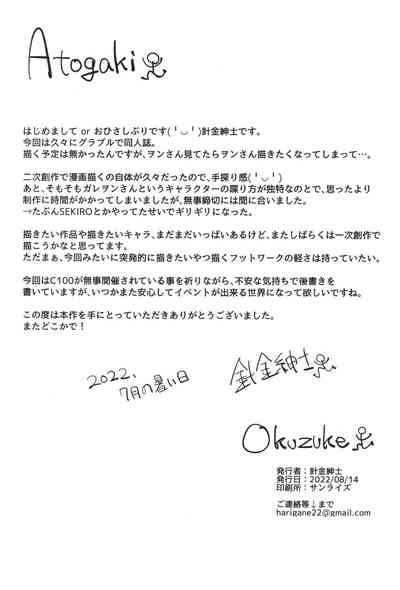 Atogaki
はじめまして or おひさしぶりです(╹◡╹)針金紳士です。
今回は久々にグラブルで同人誌。
描く予定は無かったんですが、ヲンさん見てたらヲンさん描きたくなってしまって…。
二次創作で漫画描くの自体が久々だったので、手探り感(╹◡╹)
あと、そもそもガレヲンさんというキャラクターの喋り方が独特なのとで、思ったより
制作に時間がかかってしまいましたが、無事締切には間に合いました。
→たぶんSEKIROとかやってたせいでギリギリになった。
描きたい作品や描きたいキャラ、まだまだいっぱいあるけど、またしばらくは一次創作で
描こうかなと思ってます。
ただまぁ、今回みたいに突発的に描きたいやつ描くフットワークの軽さは持っていたい。
今回はC100が無事開催されている事を祈りながら、不安な気持ちで後書きを
書いていますが、いつかまた安心してイベントが出来る世界になって欲しいですね。
この度は本作を手にとっていただきありがとうございました。
またどこかで!
2022,
7月の暑い日
針金紳士
Okuzuke
発行者:針金紳士
発行日:2022/08/14
印刷所:サンライズ
ご連絡等↓まで
harigane22@gmail.com